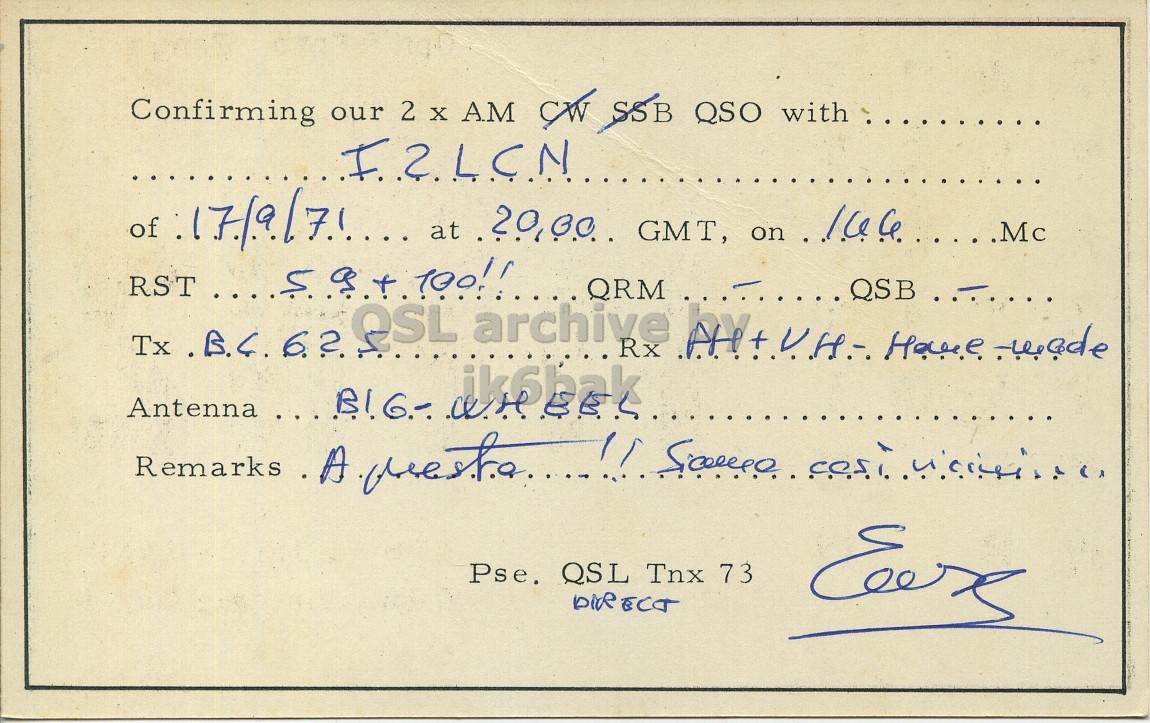 Confirming our 2 x AM CW SSB QSO with ..........
I2LCN
of 17/9/71 at 20,00 GMT, on 144 Mc
RST 59 + 100!! QRM - QSB -
QSL archive by
Tx BC 625 Rx AH+VH- Home-made
ik6bak
Antenna BIG-WHEEL
Remarks A presto !! Siamo così vicini...
Pse. QSL Tnx 73
DIRECT